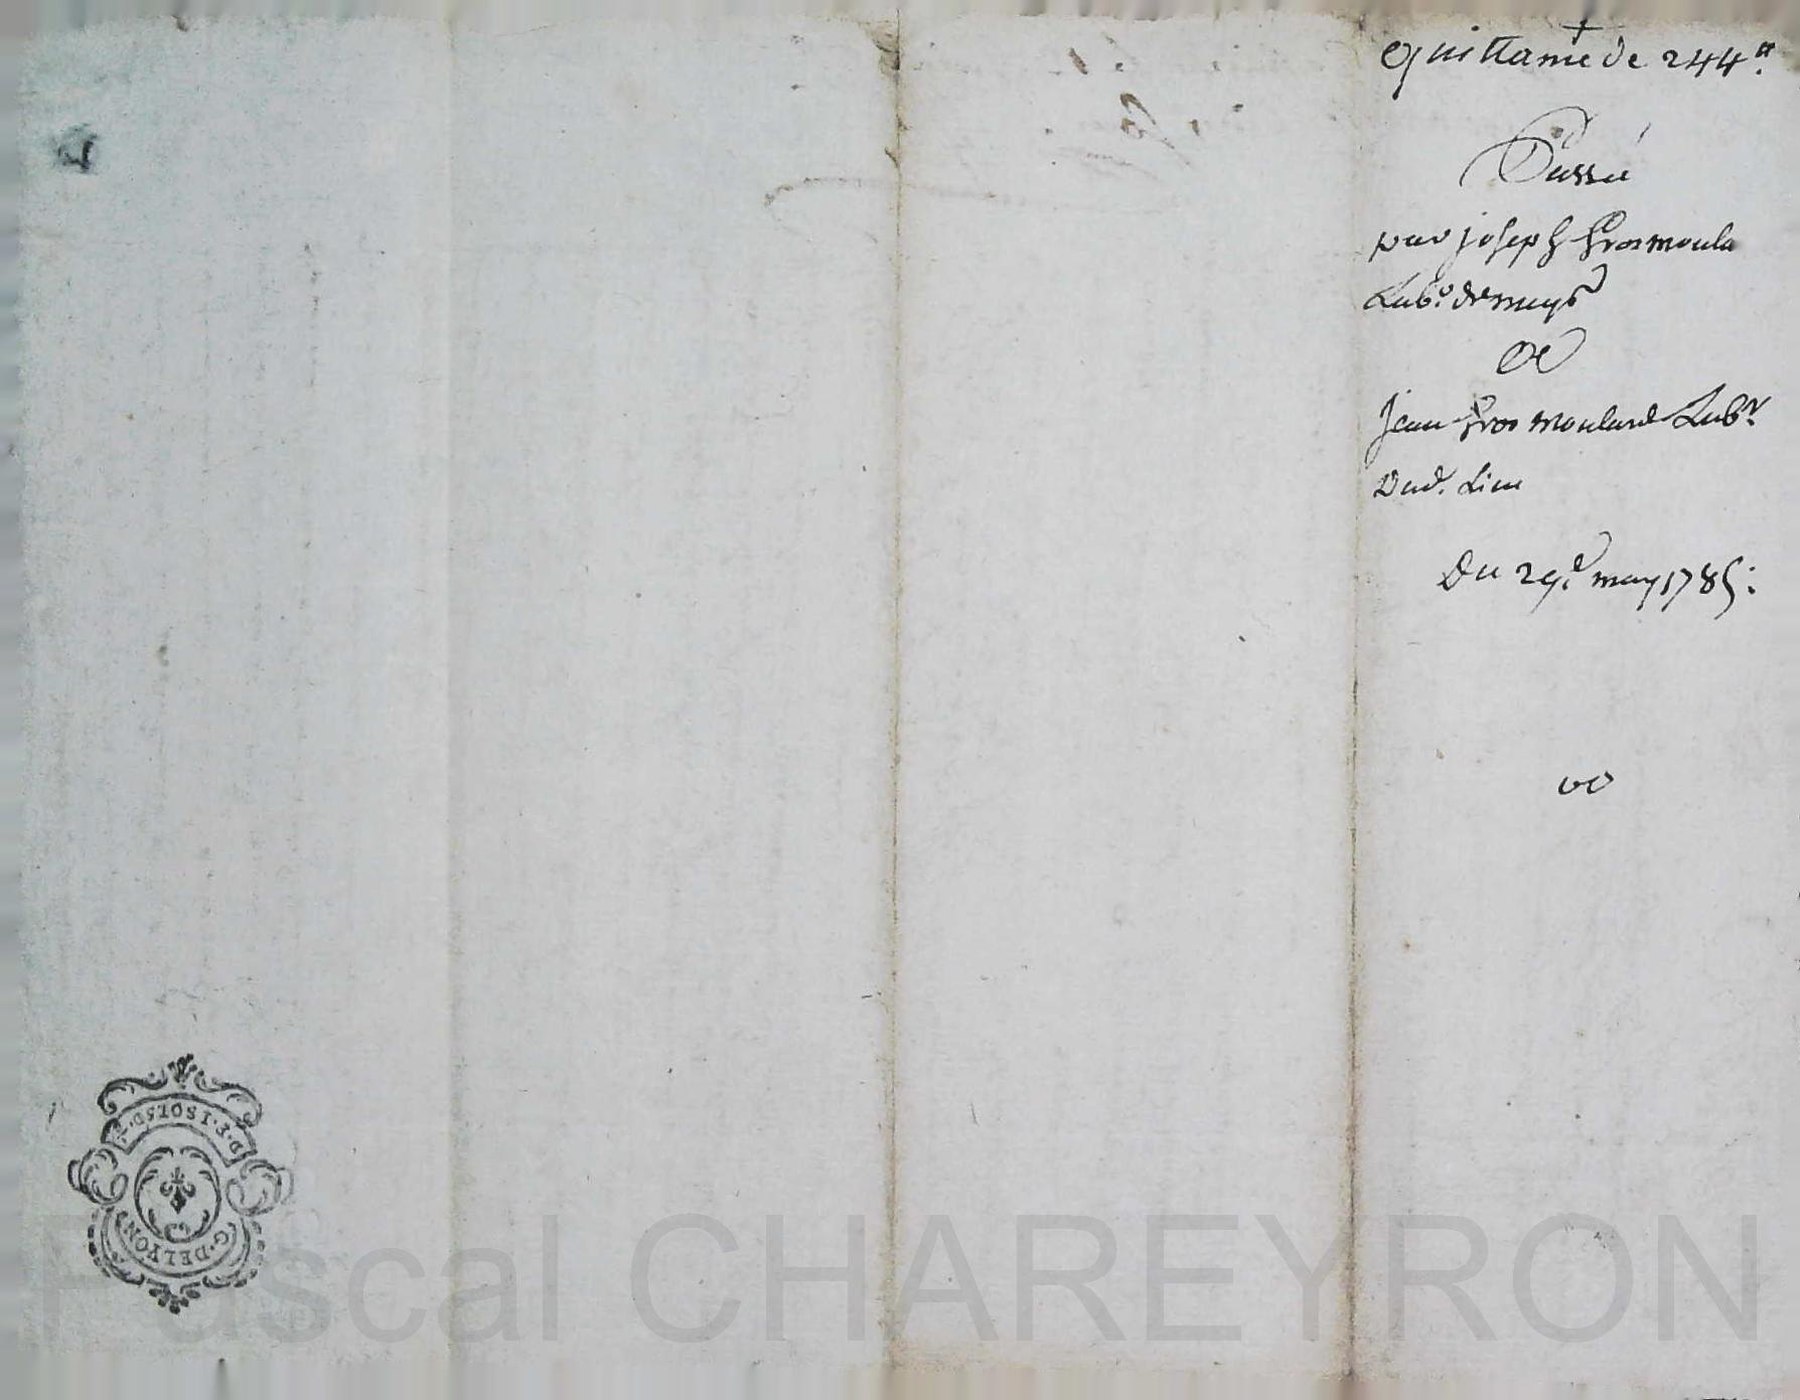 quittance de 244 ₶.
Passée
par joseph Frosmoula
Lab.r de mays
A
jean Fros moulard Lab.r
Dud. Lieu
Du 29.e may 1785:
D.E.1SOL5D.
G.DELYON
Pascal CHAREYRON